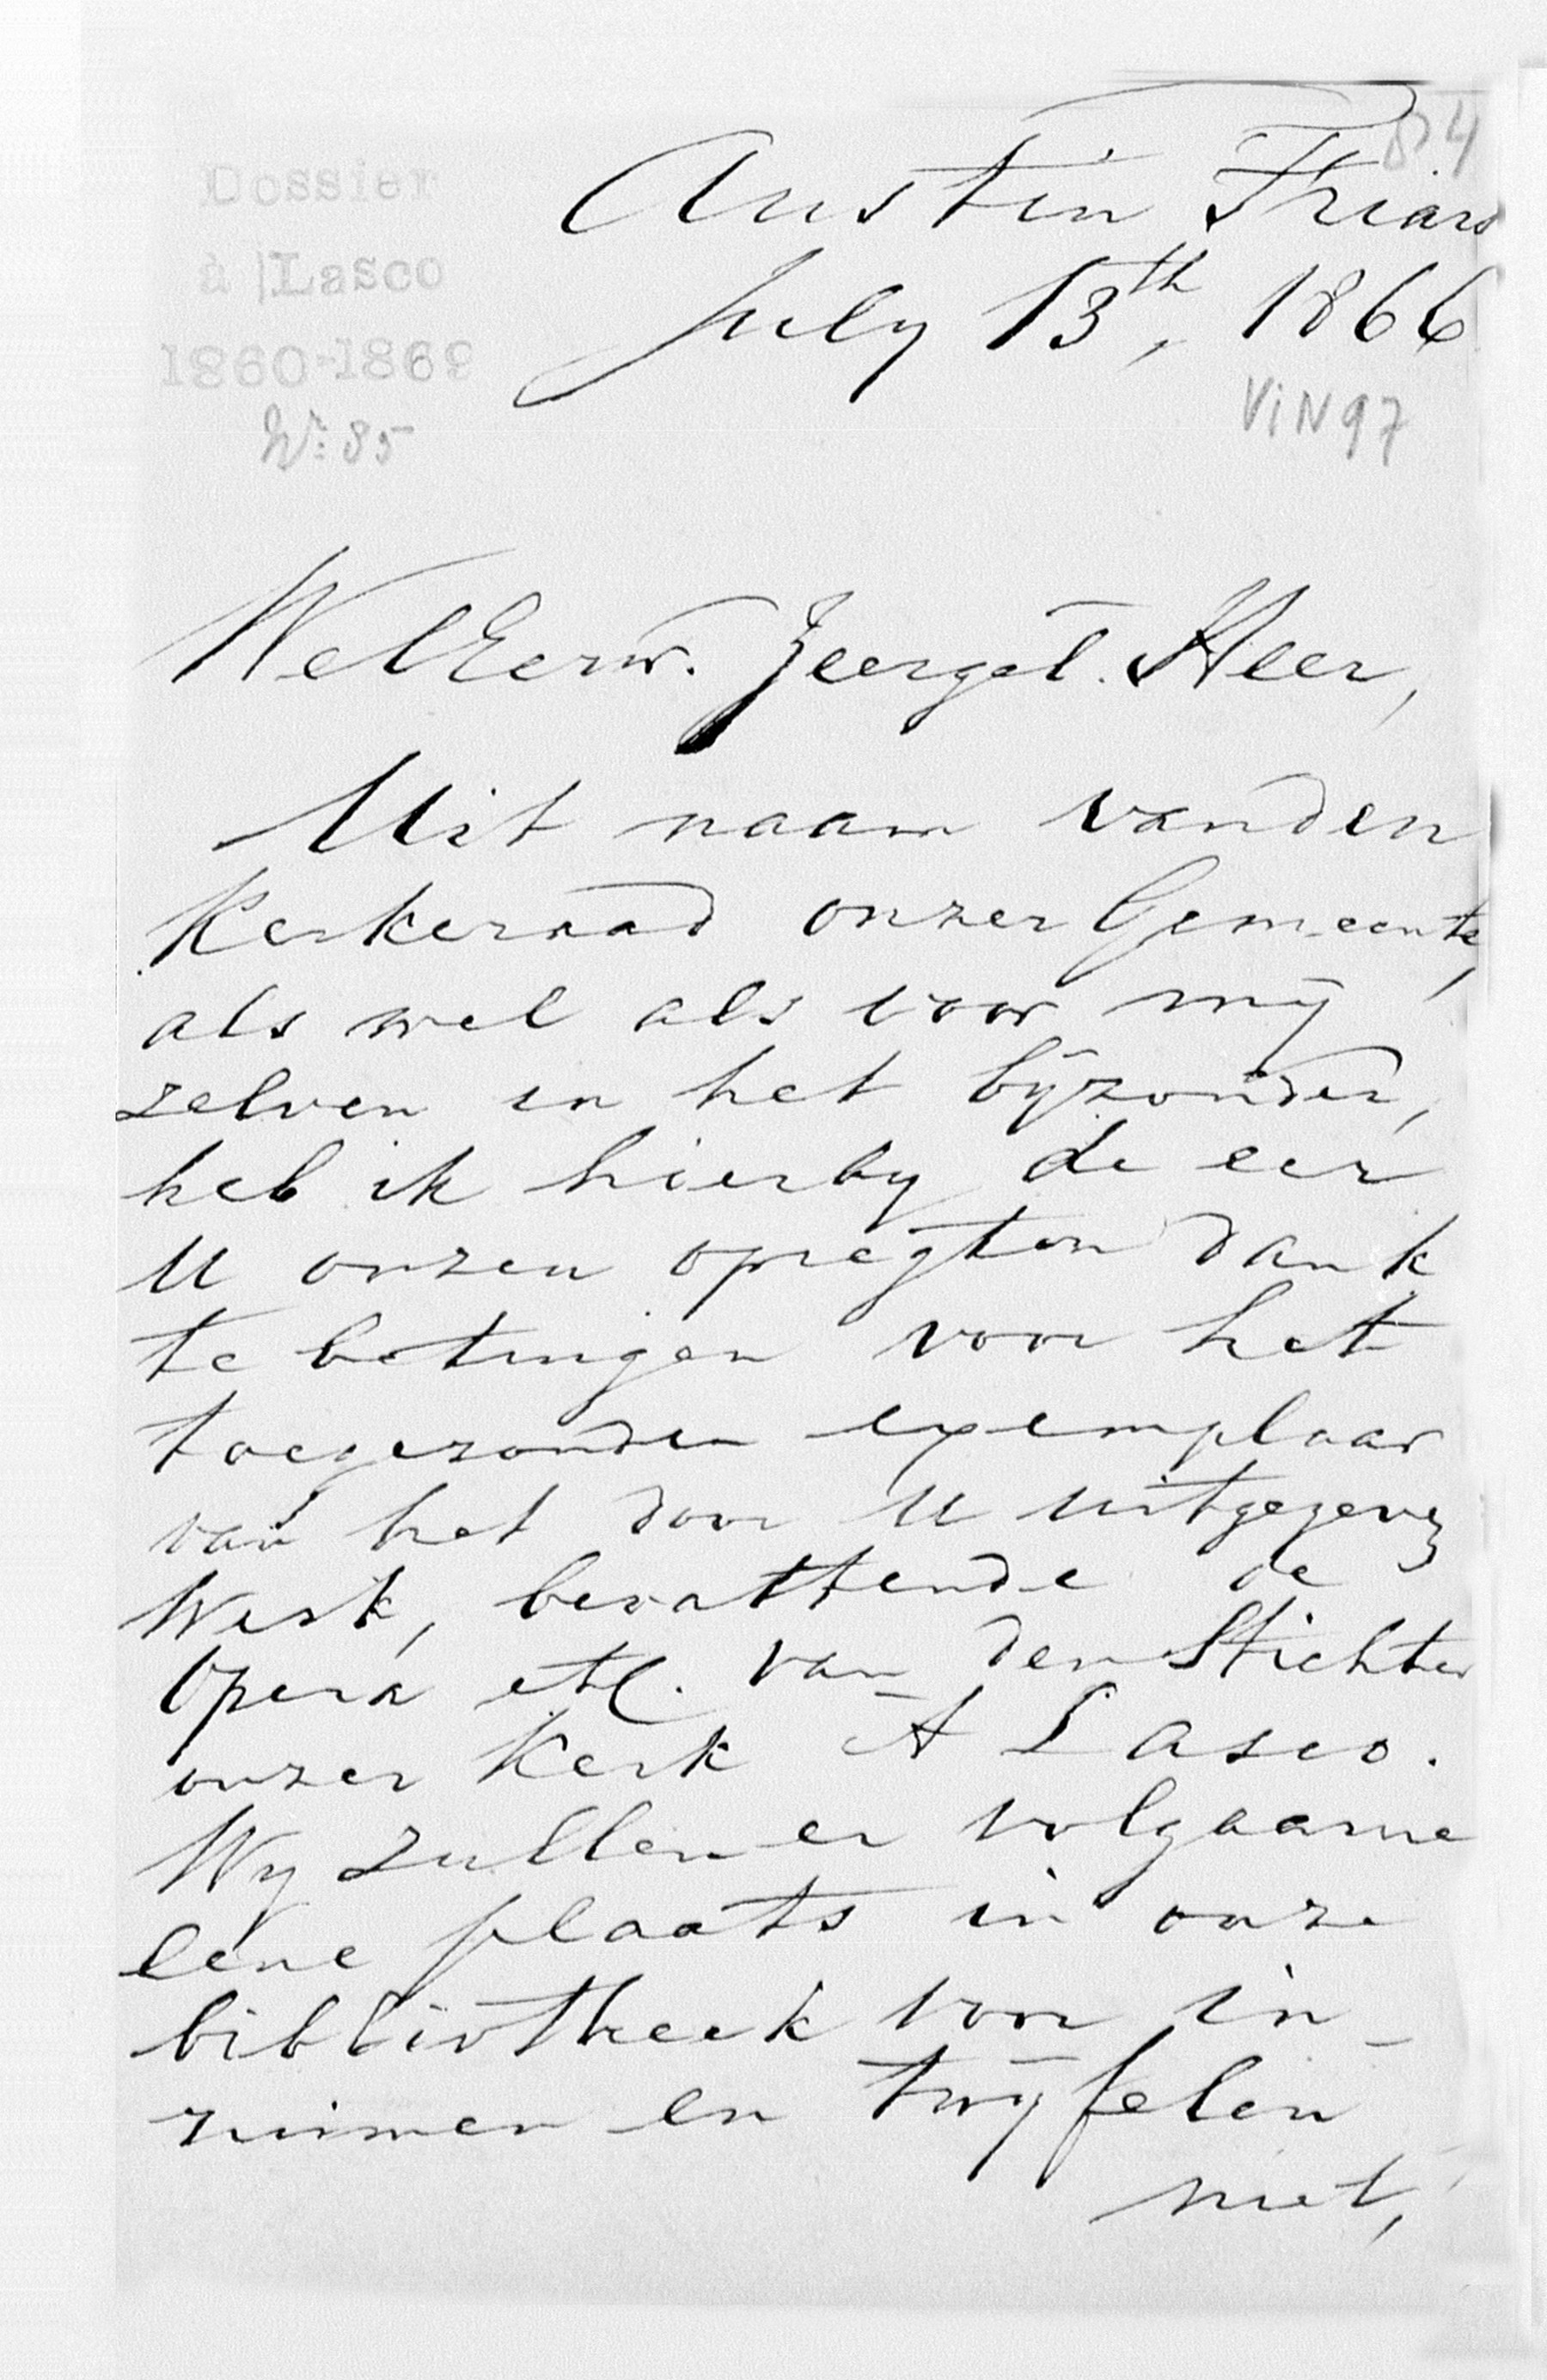 84
Austin Friars
July 13th, 1866
Dossier
à Lasco
1860-1869
No: 85
VIN97
WelEerw. Zeergel. Heer,
Uit naam van den
Kerkeraad onzer Gemeente,
als wel als voor mij
zelven in het bijzonder,
heb ik hierby de eer
U onzen opregten dank
te betuigen voor het
toegezonden exemplaar
van het door U uitgegeven
Werk, bevattende de
Opera etc. van den Stichter
onzer Kerk A Lasco.
Wy zullen er volgaarne
eene plaats in onze
bibliotheek voor in-
ruimen en twijfelen
niet,